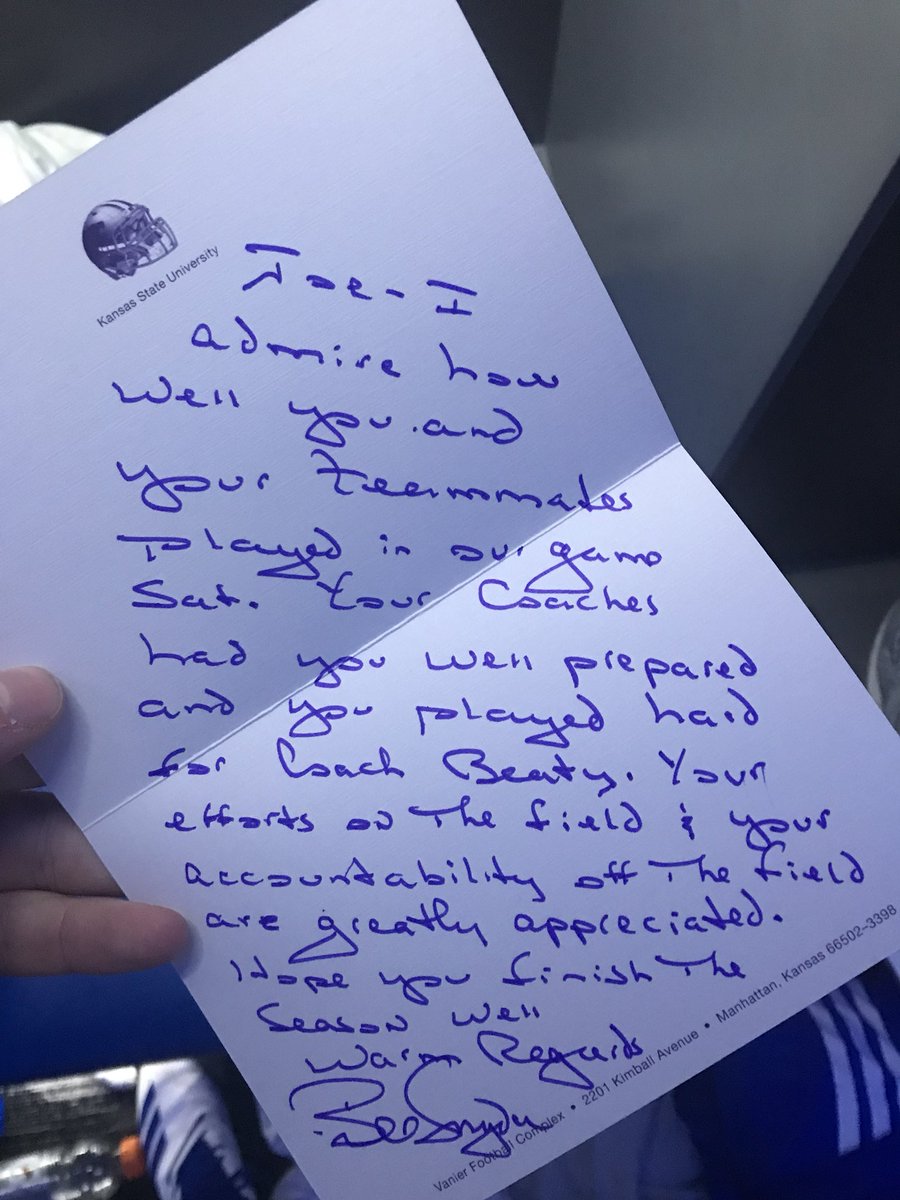 Kansas State University
Joe - I
admire how
well you and
your teammates
played in our game
Sat. Your Coaches
had you well prepared
and you played hard
for Coach Beaty. Your
efforts on The field & your
accountability off The field
are greatly appreciated.
Hope you finish The
Season well
Warm Regards
Bill Snyder
Vanier Football Complex • 2201 Kimball Avenue • Manhattan, Kansas 66502-3398